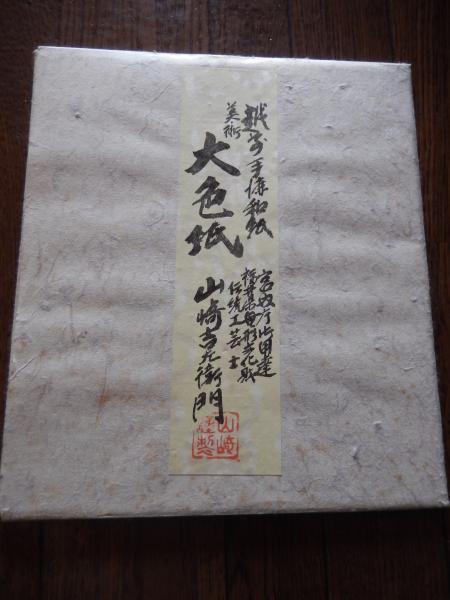 越前手漉和紙
美術
大色紙
宮内庁御用達
福井県無形文化財
伝統工芸士
山崎吉左衛門
山崎